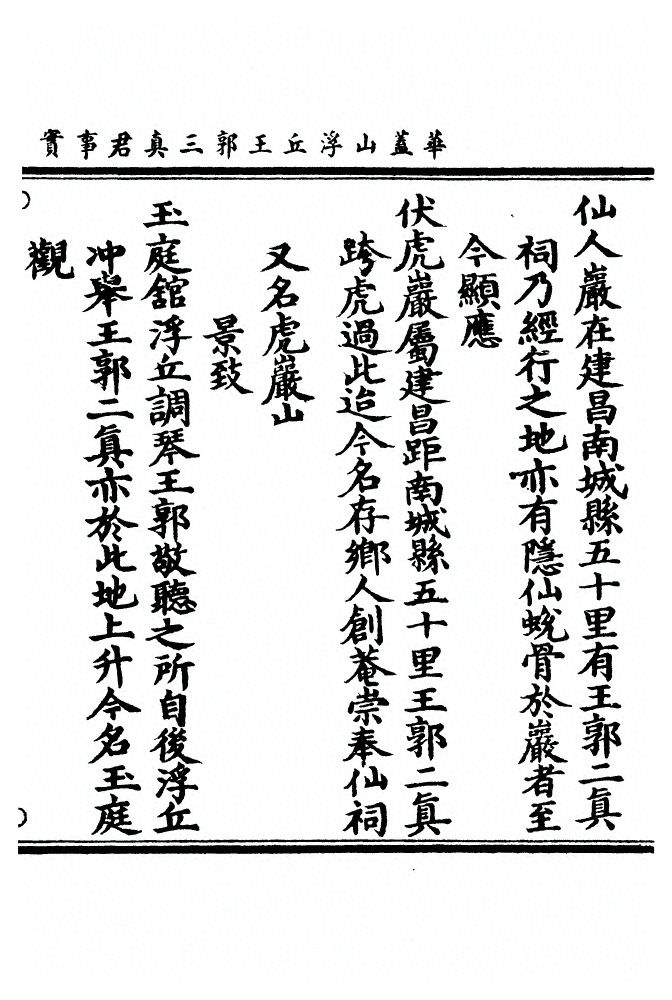 華蓋山浮丘王郭三真君事實
仙人巖在建昌南城縣五十里有王郭二眞
祠乃經行之地亦有隱仙蛻骨於巖者至
今顯應
伏虎巖屬建昌距南城縣五十里王郭二眞
跨虎過此迨今名存鄉人創菴崇奉仙祠
又名虎巖山
景致
玉庭舘浮丘調琴王郭敬聽之所自後浮丘
冲舉王郭二眞亦於此地上升今名玉庭
觀